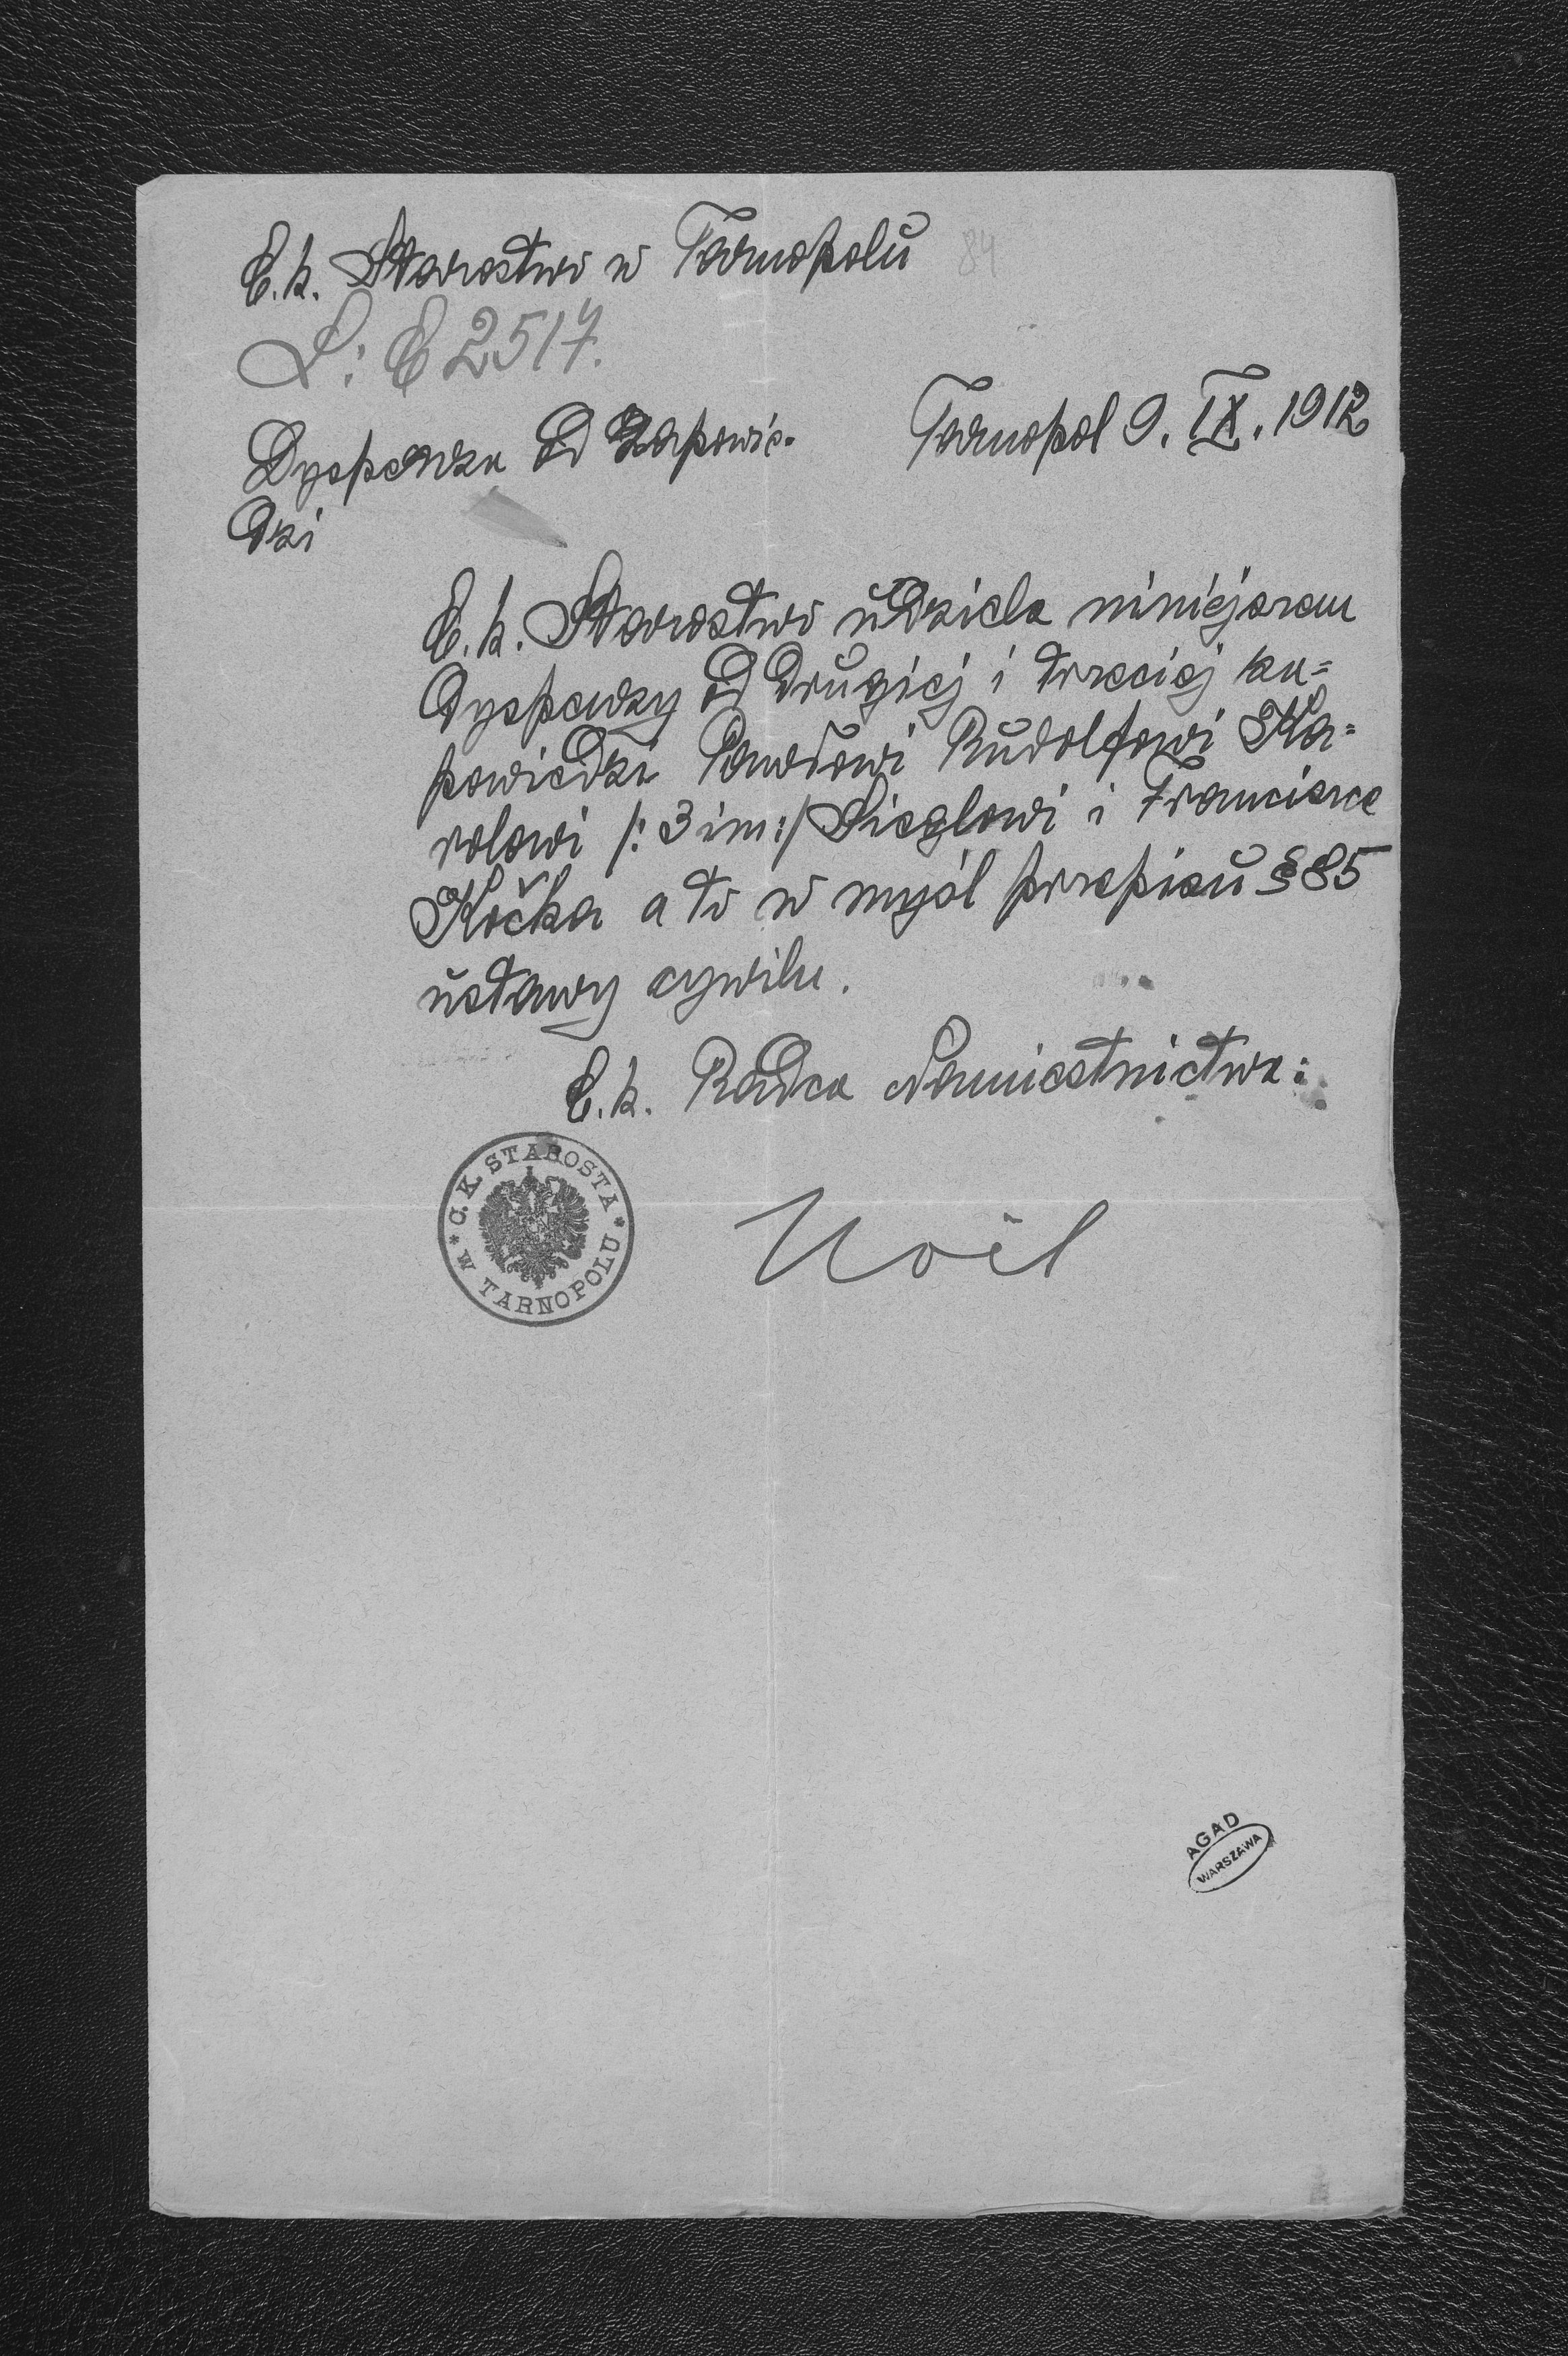 C. k. Starostwo w Tarnopolu 84
L: E 2517.
Dyspensa od zapowie-
dzi
Tarnopol 9. IX. 1912
C. k. Starostwo udziela niniejszem
dyspensy od drugiej i trzeciej za=
powiedzi Pawłowi Rudolfowi Ka=
rolowi /: 3 im:/ Sieglowi i Francisce
Kočka a to w myśl przepisu § 85
ustawy cywiln.
C. k. Radca Namiestnictwa:
C. K. STAROSTA
* W TARNOPOLU *
AGAD
WARSZAWA